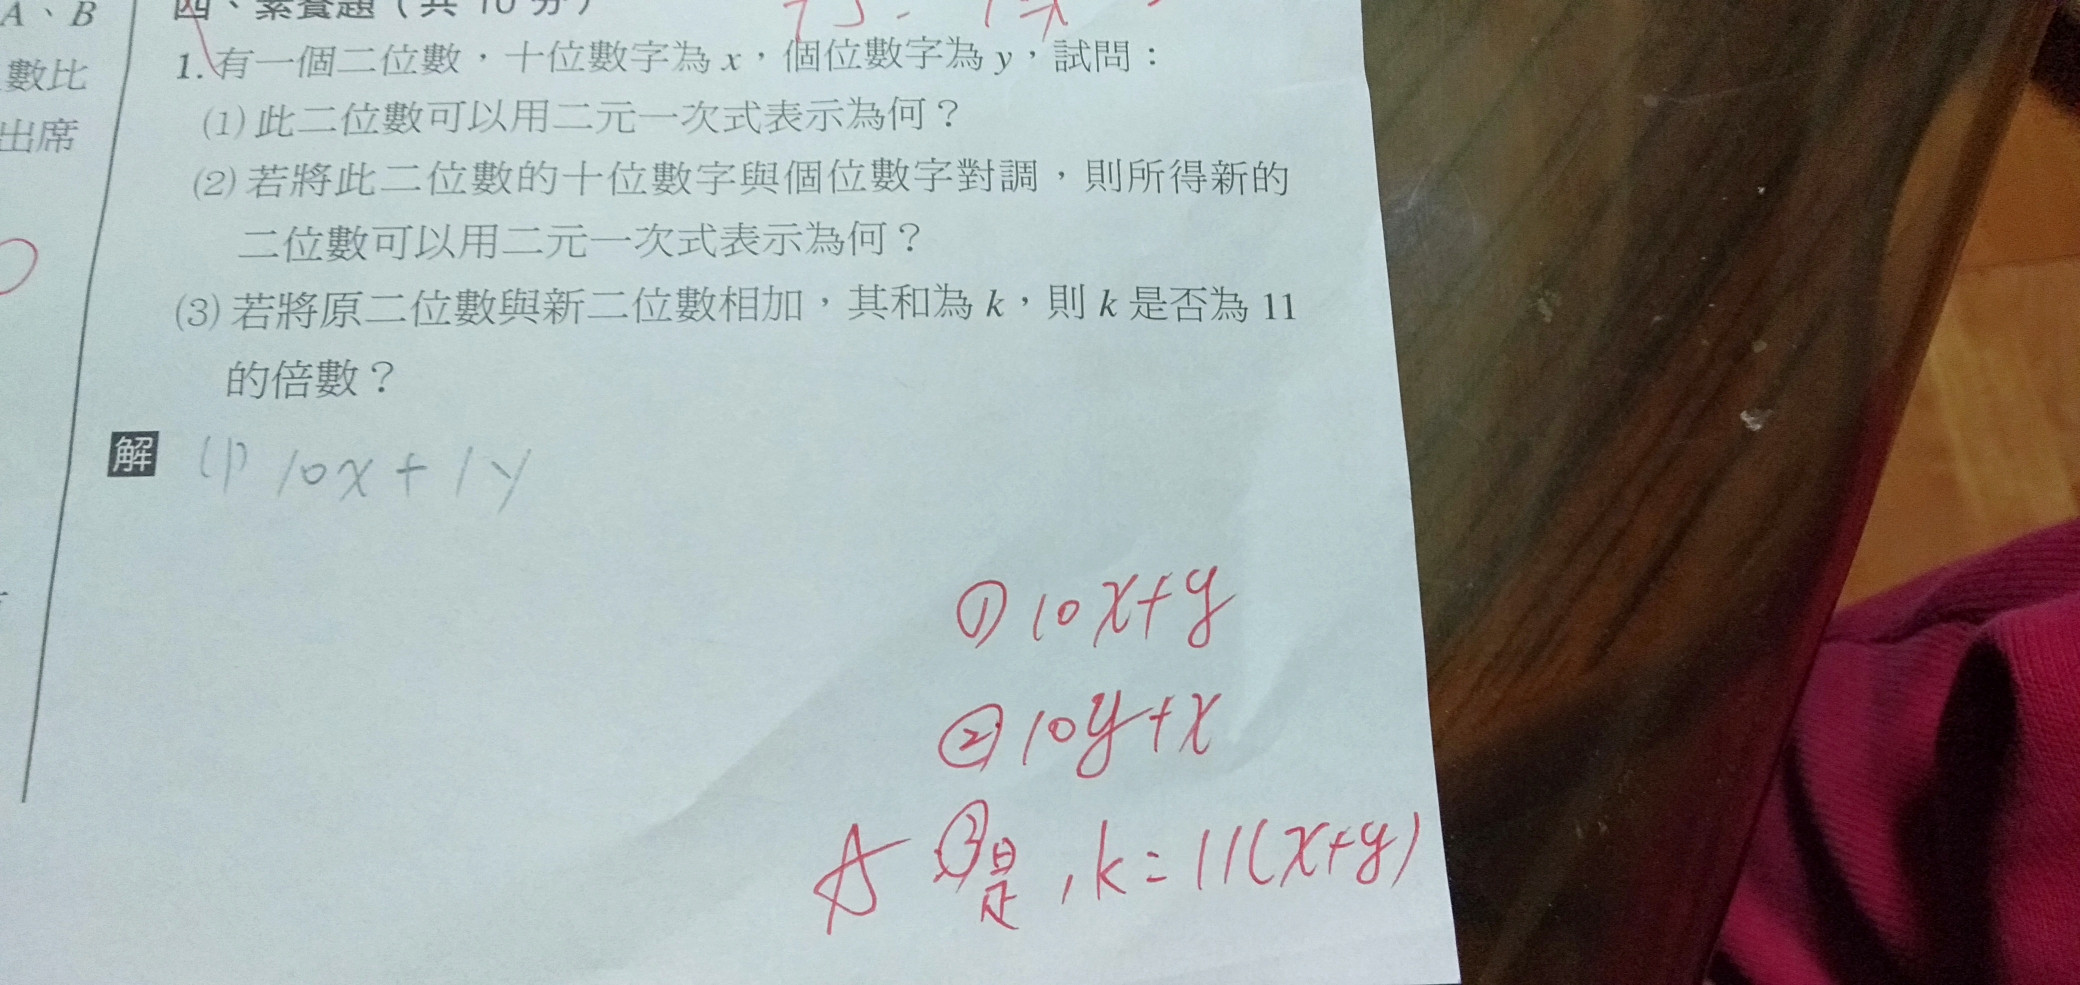 A、B
數比
出席
四、素養題（共 10 分）
1.有一個二位數，十位數字為 x，個位數字為 y，試問：
(1)此二位數可以用二元一次式表示為何？
(2)若將此二位數的十位數字與個位數字對調，則所得新的
二位數可以用二元一次式表示為何？
(3)若將原二位數與新二位數相加，其和為 k，則 k 是否為 11
的倍數？
解 (1) 10x+1y
① 10x+y
② 10y+x
③是,k=11(x+y)